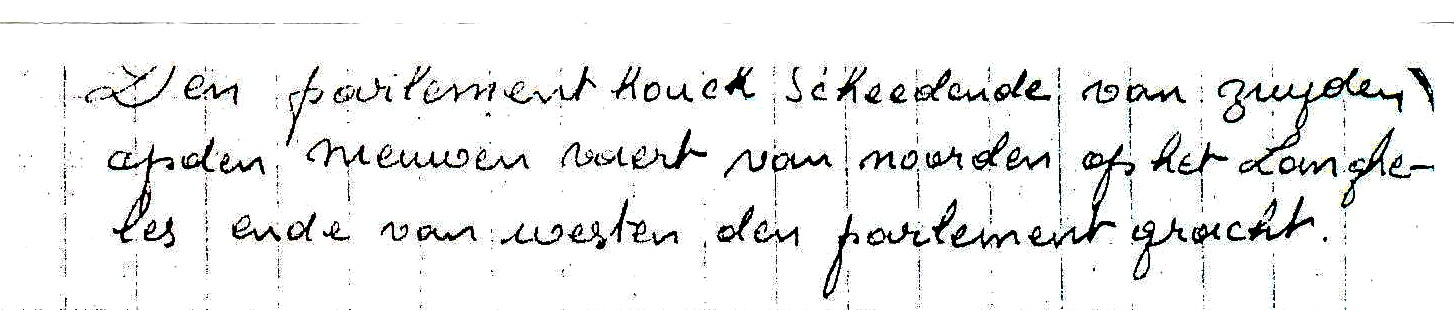 Den parlement houck scheedende van zuyden
opden nieuwen vaert van noorden op het Langhe-
les ende van westen den parlement gracht.